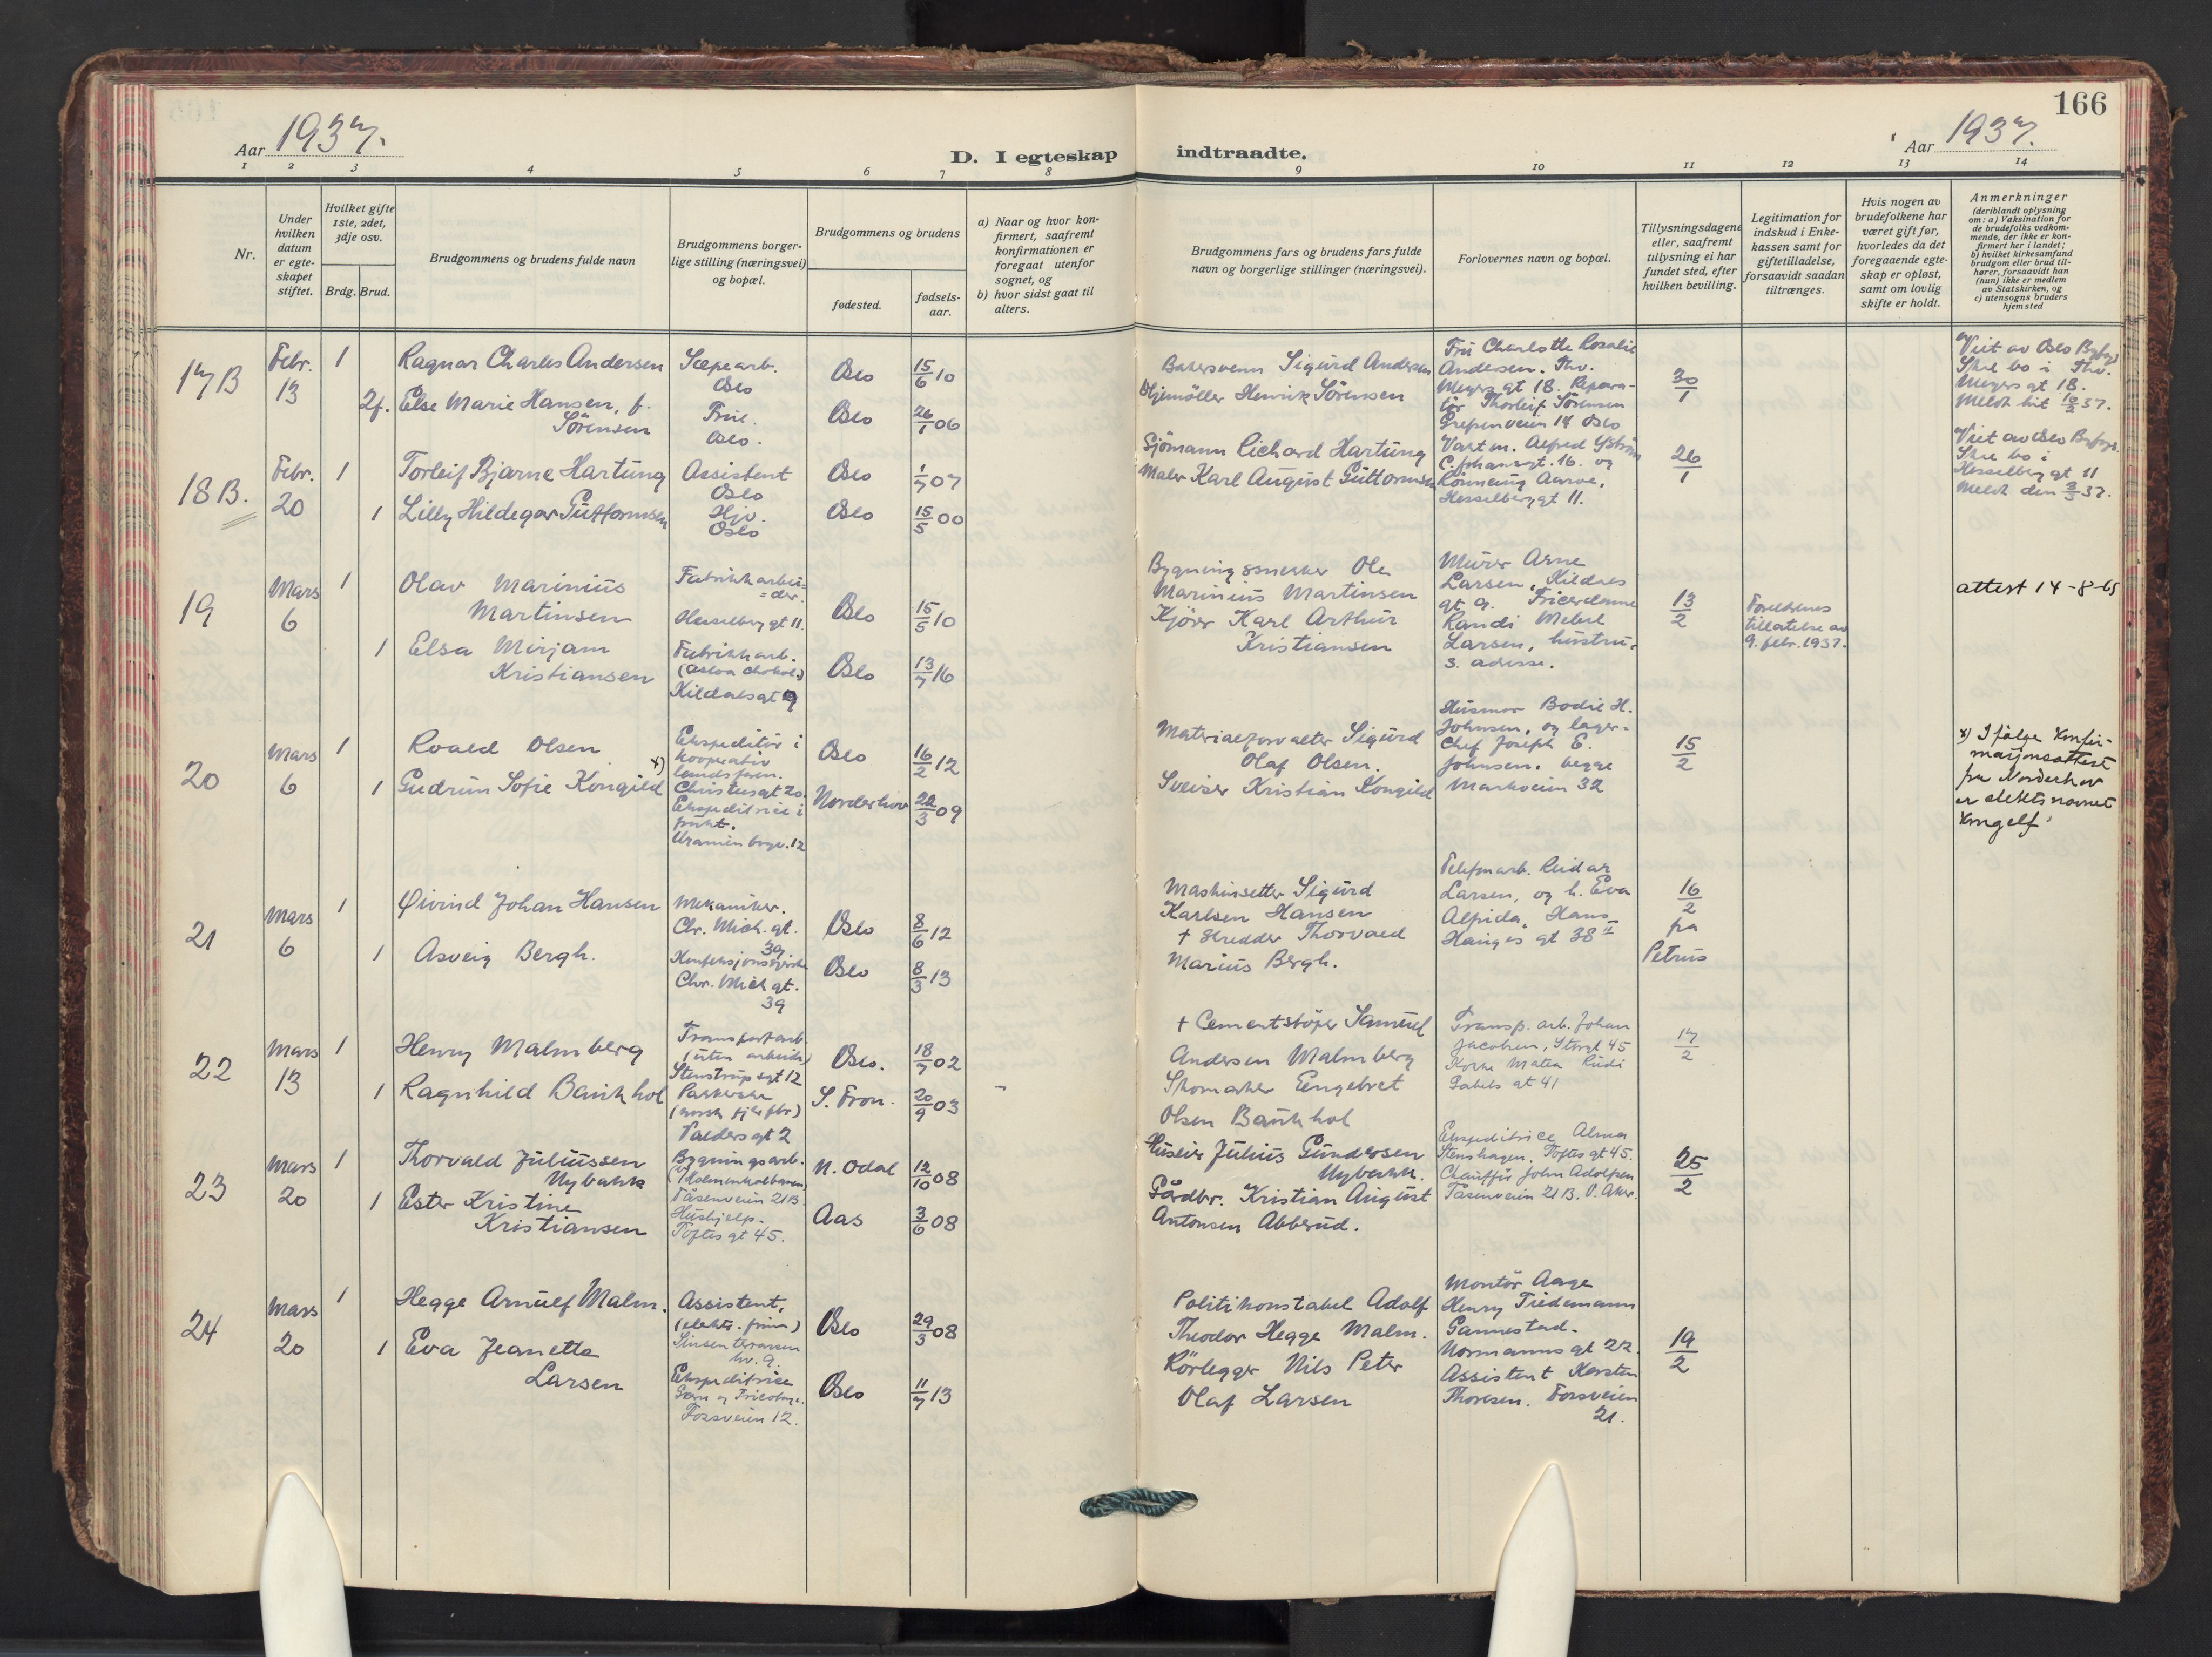 166
Aar 1937.
D. I egteskap
indtraadte.
Aar 1937.
1 2 3 4 5 6 7 8 9 10 11 12 13 14
Nr.
Under hvilken datum er egteskapet stiftet.
Hvilket gifte 1ste, 2det, 3dje osv.
Brdg. Brud.
Brudgommens og brudens fulde navn
Brudgommens borgerlige stilling (næringsvei) og bopæl.
Brudgommens og brudens
fødested.
fødselsaar.
a) Naar og hvor konfirmert, saafremt konfirmationen er foregaat utenfor sognet, og
b) hvor sidst gaat til alters.
Brudgommens fars og brudens fars fulde navn og borgerlige stillinger (næringsvei).
Forlovernes navn og bopæl.
Tillysningsdagene eller, saafremt tillysning ei har fundet sted, efter hvilken bevilling.
Legitimation for indskud i Enkekassen samt for giftetilladelse, forsaavidt saadan tiltrænges.
Hvis nogen av brudefolkene har været gift før, hvorledes da det foregaaende egteskap er opløst, samt om lovlig skifte er holdt.
Anmerkninger
(deriblandt oplysning om: a) Vaksination for de brudefolks vedkommende, der ikke er konfirmert her i landet; b) hvilket kirkesamfund brudgom eller brud tilhører, forsaavidt han (hun) ikke er medlem av Statskirken, og c) utensogns bruders hjemsted
17B
Febr. 13
1
Ragnar Charles Andersen
Sæpearb.
Oslo
Oslo
15/6 10
2f.
Else Marie Hansen, f.
Sörensen
Frue.
Oslo.
Oslo
26/1 06
Bakersvenn Sigurd Andersen
Henrik Sörensen
Fru Charlotte Rosalie
Andersen. Thv.
Meyers gt 18. Repara-
tör Thorleif Sörensen
Grefsenveien 14 Oslo
30/1
Viet av Oslo Byfogd
Skal bo i Thv.
Meyers gt 18.
18B.
Febr. 20
1
Torleif Bjarne Hartung
Assistent
Oslo
Oslo
1/7 07
1
Lilly Hildegar Guttormsen
Hjv.
Oslo
Oslo
15/5 00
Sjömann Richard Hartung
Maler Karl August Guttormsen
Hesselberg gt 11.
26/1
Viet av Oslo Byfogd
Skal bo i
Hesselberg gt 11
19
Mars 6
1
Olav Marinius
Martinsen
Fabrikkarbei-
=der.
Hesselberg gt 11.
Oslo
15/5 10
1
Elsa Mirjam
Kristiansen
Fabrikkarb.
Kildals gt 9
Oslo
13/7 16
Bygningssnekker Ole
Marinius Martinsen
Kjörer Karl Arthur
Kristiansen
Murer Arne
Larsen, Kildals
gt 9.
Randi
Larsen, hustru,
s. adresse.
13/2
Foreldrenes
tillatelse av
9. febr. 1937.
attest 14-8-65
20
Mars 6
1
Roald Olsen
Ekspeditör i
kooperativ
landsforen.
Oslo
16/2 12
1
Gudrun Sofie Kongild x)
Ekspeditrice i
frukt.
Uranienborgv. 12
Norderhov
22/3 09
Materialforvalter Sigurd
Olaf Olsen.
Sveiser Kristian Kongild
Husmor Bodil H.
Johnsen, og lager-
chef Joseph E.
Johnsen. begge
Markveien 32
15/2
x) Ifølge konfir-
masjonsattest
fra Norderhov
er slektsnavnet
Kongelf
21
Mars 6
1
Øivind Johan Hansen
Mekaniker.
Chr. Mich. gt.
39
Oslo
8/6 12
1
Asveig Bergh.
Chr. Mich gt.
39
Oslo
8/3 13
Maskinsetter Sigurd
Karlsen Hansen
+ Skredder Thorvald
Marius Bergh.
Telefonarb. Reidar
Larsen, og h. Eva
Alfida, Hans
Hauges gt 38 II
16/2
fra
Petrus
22
Mars 13
1
Henry Malmberg
Transportarb.
(uten arbeide)
Stenstrups gt 12
Oslo.
18/7 02
1
Ragnhild Baukhol
Pakkerske
Valders gt 2
S. Fron.
20/9 03
-
+ Cementstöper Samuel
Andersen Malmberg
Skomaker Engebret
Olsen Baukhol
Transp. arb. Johan
Jacobsen, Storgt 45
Kokke Matea Rudi
Gabels gt 41
17/2
23
Mars 20
1
Thorvald Juliussen
Nybakk
Bygningsarb.
(Holmenkolbanen)
Tåsenveien 21B.
N. Odal
12/10 08
1
Ester Kristine
Kristiansen
Hushjelp.
Toftes gt 45.
Aas
3/6 08
Huseier Julius Gundersen
Nybakk.
Gårdbr. Kristian August
Antonsen Abberud.
Ekspeditrice Alma
Stenshagen. Toftes gt 45.
Chauffür John Adolfsen
Tåsenveien 21B. V. Aker.
25/2
24
Mars 20
1
Hegge Arnulf Malm.
Assistent,
(elektr. firma)
Sinsenterrassen
hv. 9.
Oslo
29/3 08
1
Eva Jeanette
Larsen
Ekspeditrise
Garn og Tricotage.
Fossveien 12.
Oslo
11/7 13
Politikonstabel Adolf
Theodor Hegge Malm.
Rörlegger Nils Peter
Olaf Larsen
Montör Aage
Henry Tiedemann
Gannestad.
Normanns gt 22.
Assistent Karsten
Thoresen. Fossveien
21.
19/2